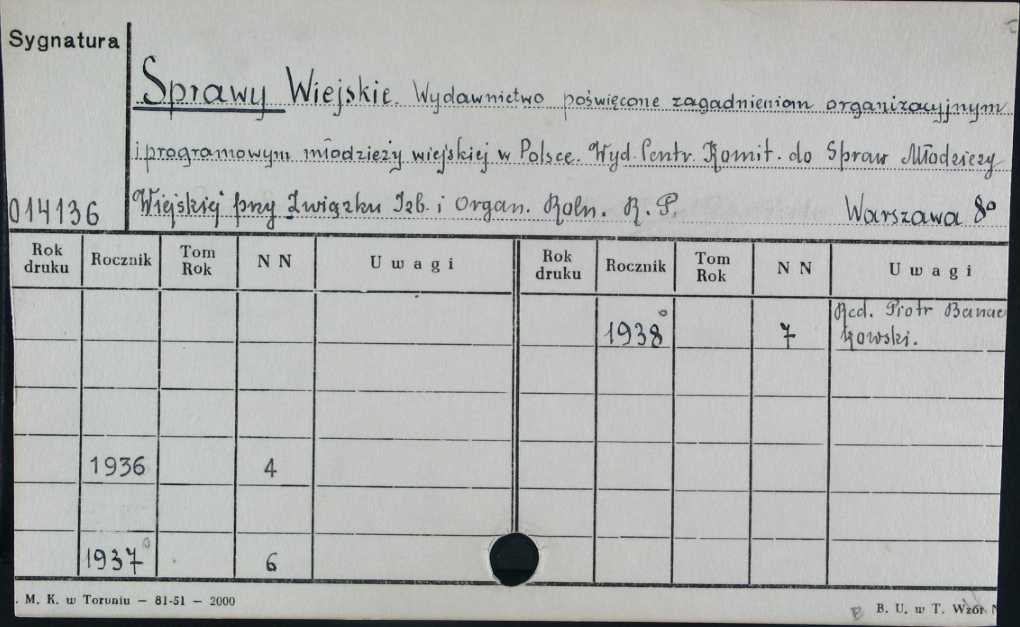 Sygnatura
Sprawy Wiejskie. Wydawnictwo poświęcone zagadnieniom organizacyjnym
i programowym młodzieży wiejskiej w Polsce. Wyd. Centr. Komit. do Spraw Młodzieży
014136 Wiejskiej przy Związku Izb. i Organ. Roln. R. P. Warszawa 8°
Rok druku Rocznik Tom Rok N N Uwagi Rok druku Rocznik Tom Rok N N Uwagi
1938° 7 Red. Piotr Banac
kowski.
1936 4
1937° 6
. M. K. w Toruniu — 81-51 — 2000 B. U. w T. Wzór N